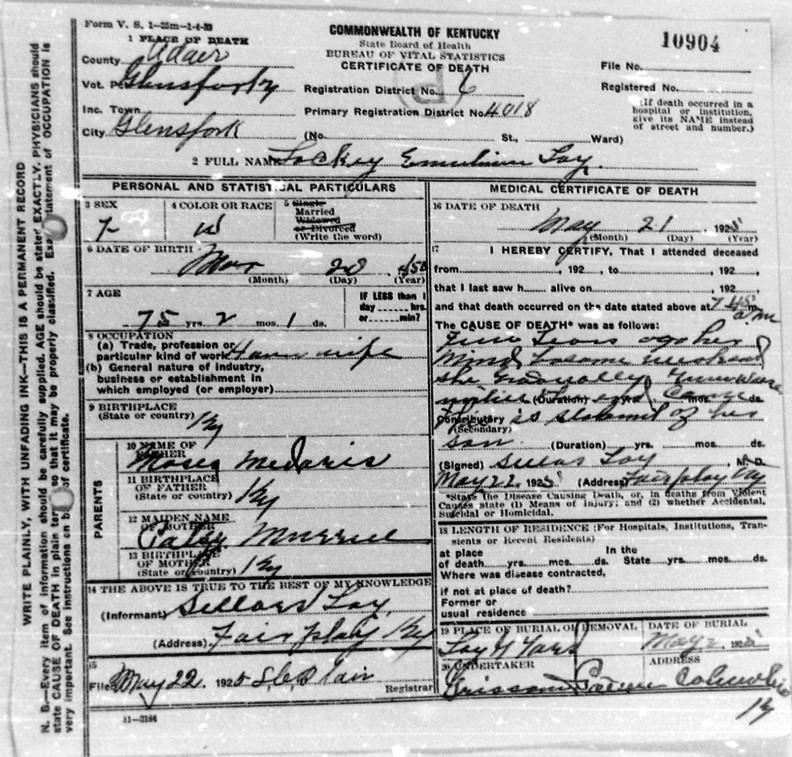 Form V. S. 1-25m-1-4-23
COMMONWEALTH OF KENTUCKY
State Board of Health
BUREAU OF VITAL STATISTICS
CERTIFICATE OF DEATH
10904
1 PLACE OF DEATH
County Adair
Vot. Glensfork
Inc. Town
City Glensfork
File No.
Registration District No. 6
Registered No.
Primary Registration District No. 4018
(If death occurred in a hospital or institution, give its NAME instead of street and number.)
(No. St., Ward)
2 FULL NAME Lockey Loy
PERSONAL AND STATISTICAL PARTICULARS
3 SEX
F
4 COLOR OR RACE
W
5 Single
Married
Widowed
or Divorced
(Write the word)
6 DATE OF BIRTH
Mar 20 1850
(Month) (Day) (Year)
7 AGE
75 yrs. 2 mos. 1 ds.
IF LESS than 1
day hrs.
or min?
8 OCCUPATION
(a) Trade, profession or
particular kind of work wife
(b) General nature of industry,
business or establishment in
which employed (or employer)
9 BIRTHPLACE
(State or country)
Ky
PARENTS
10 NAME OF
FATHER
Moses Medaris
11 BIRTHPLACE
OF FATHER
(State or country) Ky
12 MAIDEN NAME
OF MOTHER
Patsy Murrell
13 BIRTHPLACE
OF MOTHER
(State or country) Ky
14 THE ABOVE IS TRUE TO THE BEST OF MY KNOWLEDGE
(Informant) Loy
(Address) Fairplay Ky
15
Filed May 22 1925 Blair
Registrar
11-3184
MEDICAL CERTIFICATE OF DEATH
16 DATE OF DEATH
May 21 1925
(Month) (Day) (Year)
17 I HEREBY CERTIFY, That I attended deceased
from , 192 , to , 192 ,
that I last saw h alive on , 192 ,
and that death occurred on the date stated above at 7 45 a m
The CAUSE OF DEATH* was as follows:
Years ago her
mind became
she gradually
(Duration) yrs. mos. ds.
Contributory is of her
(Secondary)
son (Duration) yrs. mos. ds.
(Signed) Loy, M. D.
May 22 1925 (Address) Fairplay Ky
*State the Disease Causing Death, or, in deaths from Violent
Causes state (1) Means of Injury; and (2) whether Accidental,
Suicidal or Homicidal.
18 LENGTH OF RESIDENCE (For Hospitals, Institutions, Transients or Recent Residents)
at place In the
of death yrs. mos. ds. State yrs. mos. ds.
Where was disease contracted,
if not at place of death?
Former or
usual residence
19 PLACE OF BURIAL OR REMOVAL
Loy G Yard
DATE OF BURIAL
May 192
20 UNDERTAKER
Grissom
ADDRESS
Columbia
Ky
WRITE PLAINLY, WITH UNFADING INK—THIS IS A PERMANENT RECORD
N. B.—Every item of information should be carefully supplied. AGE should be stated EXACTLY. PHYSICIANS should
state CAUSE OF DEATH in plain terms, so that it may be properly classified. Exact statement of OCCUPATION is
very important. See instructions on back of certificate.